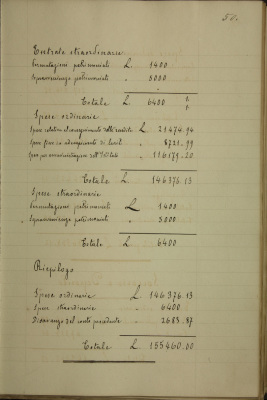 50.
Entrate straordinarie
Permutazioni patrimoniali L. 1400
Sopravvenienze patrimoniali „ 5000
Totale L. 6400
Spese ordinarie
Spese relative al conseguimento delle rendite L. 21474.94
Spese fisse in adempimento di lasciti „ 8721.99
Spese per amministrazione dell'Istituto „ 116179.20
Totale L. 146376.13
Spese straordinarie
Permutazioni patrimoniali L. 1400
Sopravvenienze patrimoniali „ 5000
Totale L. 6400
Riepilogo
Spese ordinarie L. 146376.13
Spese straordinarie „ 6400
Disavanzo del conto precedente „ 2683.87
Totale L. 155460.00